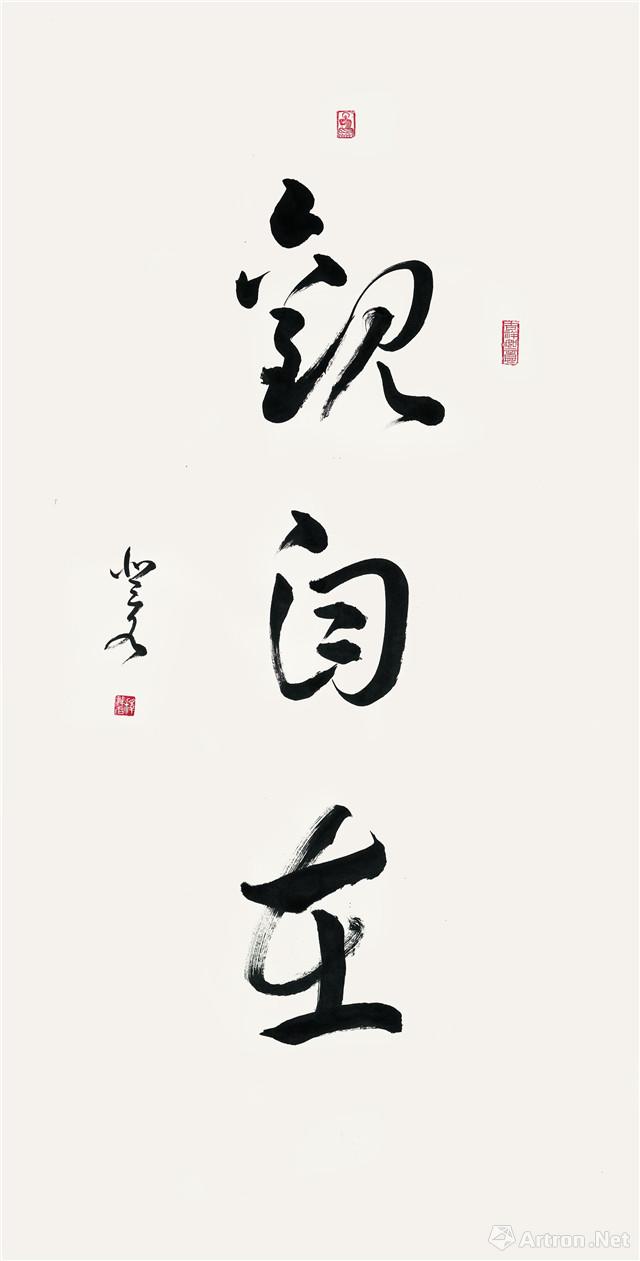 觀自在
Artron.Net